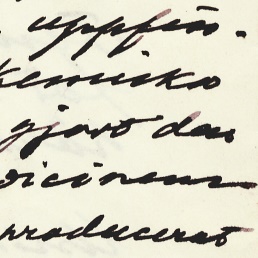 uppfin-
kemiska
gjort den
dicinens
producerat